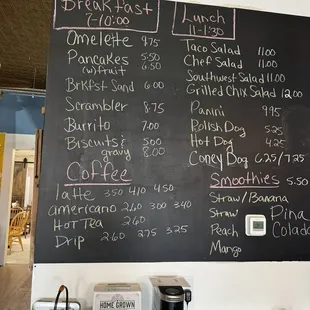 Breakfast
7-10:00
Omelette 9.75
Pancakes 5.50
(w) fruit 6.50
Brkfst Sand 6.00
Scrambler 8.75
Burrito 7.00
Biscuits & 5.00
gravy 8.00
Coffee
latte 350 410 450
americano 260 300 340
Hot Tea 260
Drip 260 275 325
Lunch
11-1:30
Taco Salad 11.00
Chef Salad 11.00
Southwest Salad 11.00
Grilled Chix Salad 12.00
Panini 9.95
Polish Dog 5.25
Hot Dog 4.25
Coney Dog 6.25/7.25
Smoothies 5.50
Straw/Banana
Straw
Peach
Mango
Pina
Colada
HOME GROWN